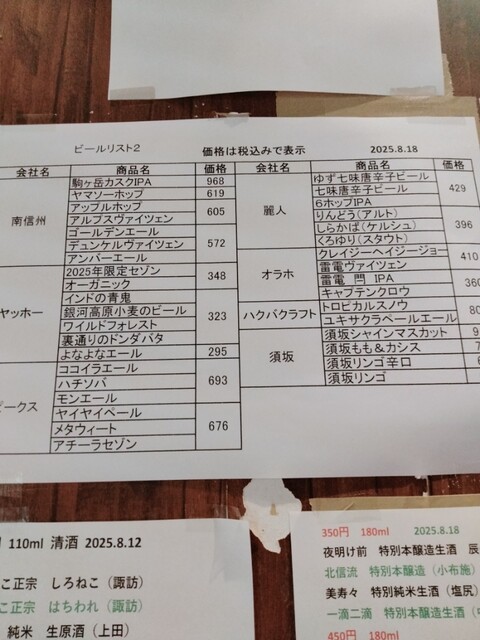 ビールリスト2 価格は税込みで表示 2025.8.18
会社名 商品名 価格 会社名 商品名 価格
南信州
駒ヶ岳カスクIPA 968
ヤマソーホップ 619
アップルホップ
アルプスヴァイツェン
605
ゴールデンエール
デュンケルヴァイツェン
アンバーエール
572
ヤッホー
2025年限定セゾン
オーガニック
348
インドの青鬼
銀河高原小麦のビール
ワイルドフォレスト
裏通りのドンダバタ
323
よなよなエール 295
ピークス
ココイラエール
ハチソバ
モンエール
693
ヤイヤイペール
メタウィート
アチーラセゾン
676
麗人
ゆず七味唐辛子ビール
七味唐辛子ビール
6ホップIPA
429
りんどう(アルト)
しらかば(ケルシュ)
くろゆり(スタウト)
396
オラホ
クレイジーヘイジージョー
雷電ヴァイツェン
410
雷電 閂 IPA
キャプテンクロウ
360
ハクバクラフト
トロピカルスノウ
ユキサクラペールエール
80
須坂
須坂シャインマスカット 9
須坂もも&カシス 7
須坂リンゴ辛口 6
須坂リンゴ
110ml 清酒 2025.8.12
こ正宗 しろねこ(諏訪)
こ正宗 はちわれ(諏訪)
純米 生原酒(上田)
350円 180ml 2025.8.18
夜明け前 特別本醸造生酒 辰
北信流 特別本醸造(小布施)
美寿々 特別純米生酒(塩尻)
一滴二滴 特別本醸造生酒(中
450円 180ml